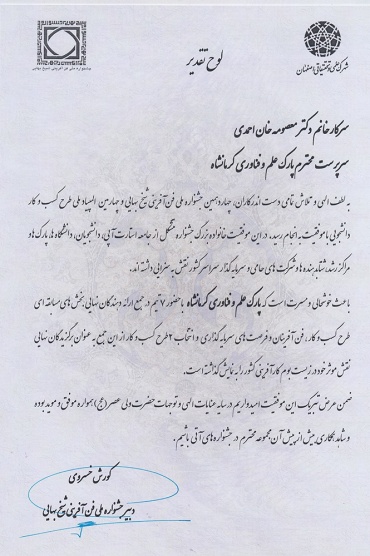 شهرک علمی و تحقیقاتی اصفهان
جشنواره ملی فن آفرینی شیخ بهایی
لوح تقدیر
سرکار خانم دکتر معصومه خان احمدی
سرپرست محترم پارک علم و فناوری کرمانشاه
به لطف الهی و تلاش تمامی دست اندرکاران، چهاردهمین جشنواره ملی فن آفرینی شیخ بهایی و چهارمین المپیاد ملی طرح کسب و کار
دانشجویی با موفقیت به انجام رسید. در این موفقیت خانواده بزرگ جشنواره متشکل از جامعه استارت آپی، دانشجویان، دانشگاه ها، پارک ها و
مراکز رشد، شتابدهنده ها و شرکت های حامی و سرمایه گذار سراسر کشور نقش به سزایی داشته اند.
باعث خوشحالی و مسرت است که پارک علم و فناوری کرمانشاه با حضور ۷ تیم در جمع ارائه دهندگان نهایی بخش های مسابقه ای
طرح کسب و کار، فن آفرینان و فرصت های سرمایه گذاری و انتخاب ۲ طرح کسب و کار از این جمع به عنوان برگزیدگان نهایی
نقش موثر خود در زیست بوم کارآفرینی کشور را به نمایش گذاشته است.
ضمن عرض تبریک این موفقیت امیدواریم در سایه عنایات الهی و توجهات حضرت ولی عصر (عج) همواره موفق و موید بوده
و شاهد همکاری بیش از پیش آن مجموعه محترم در جشنواره های آتی باشیم.
کورش خسروی
دبیر جشنواره ملی فن آفرینی شیخ بهایی